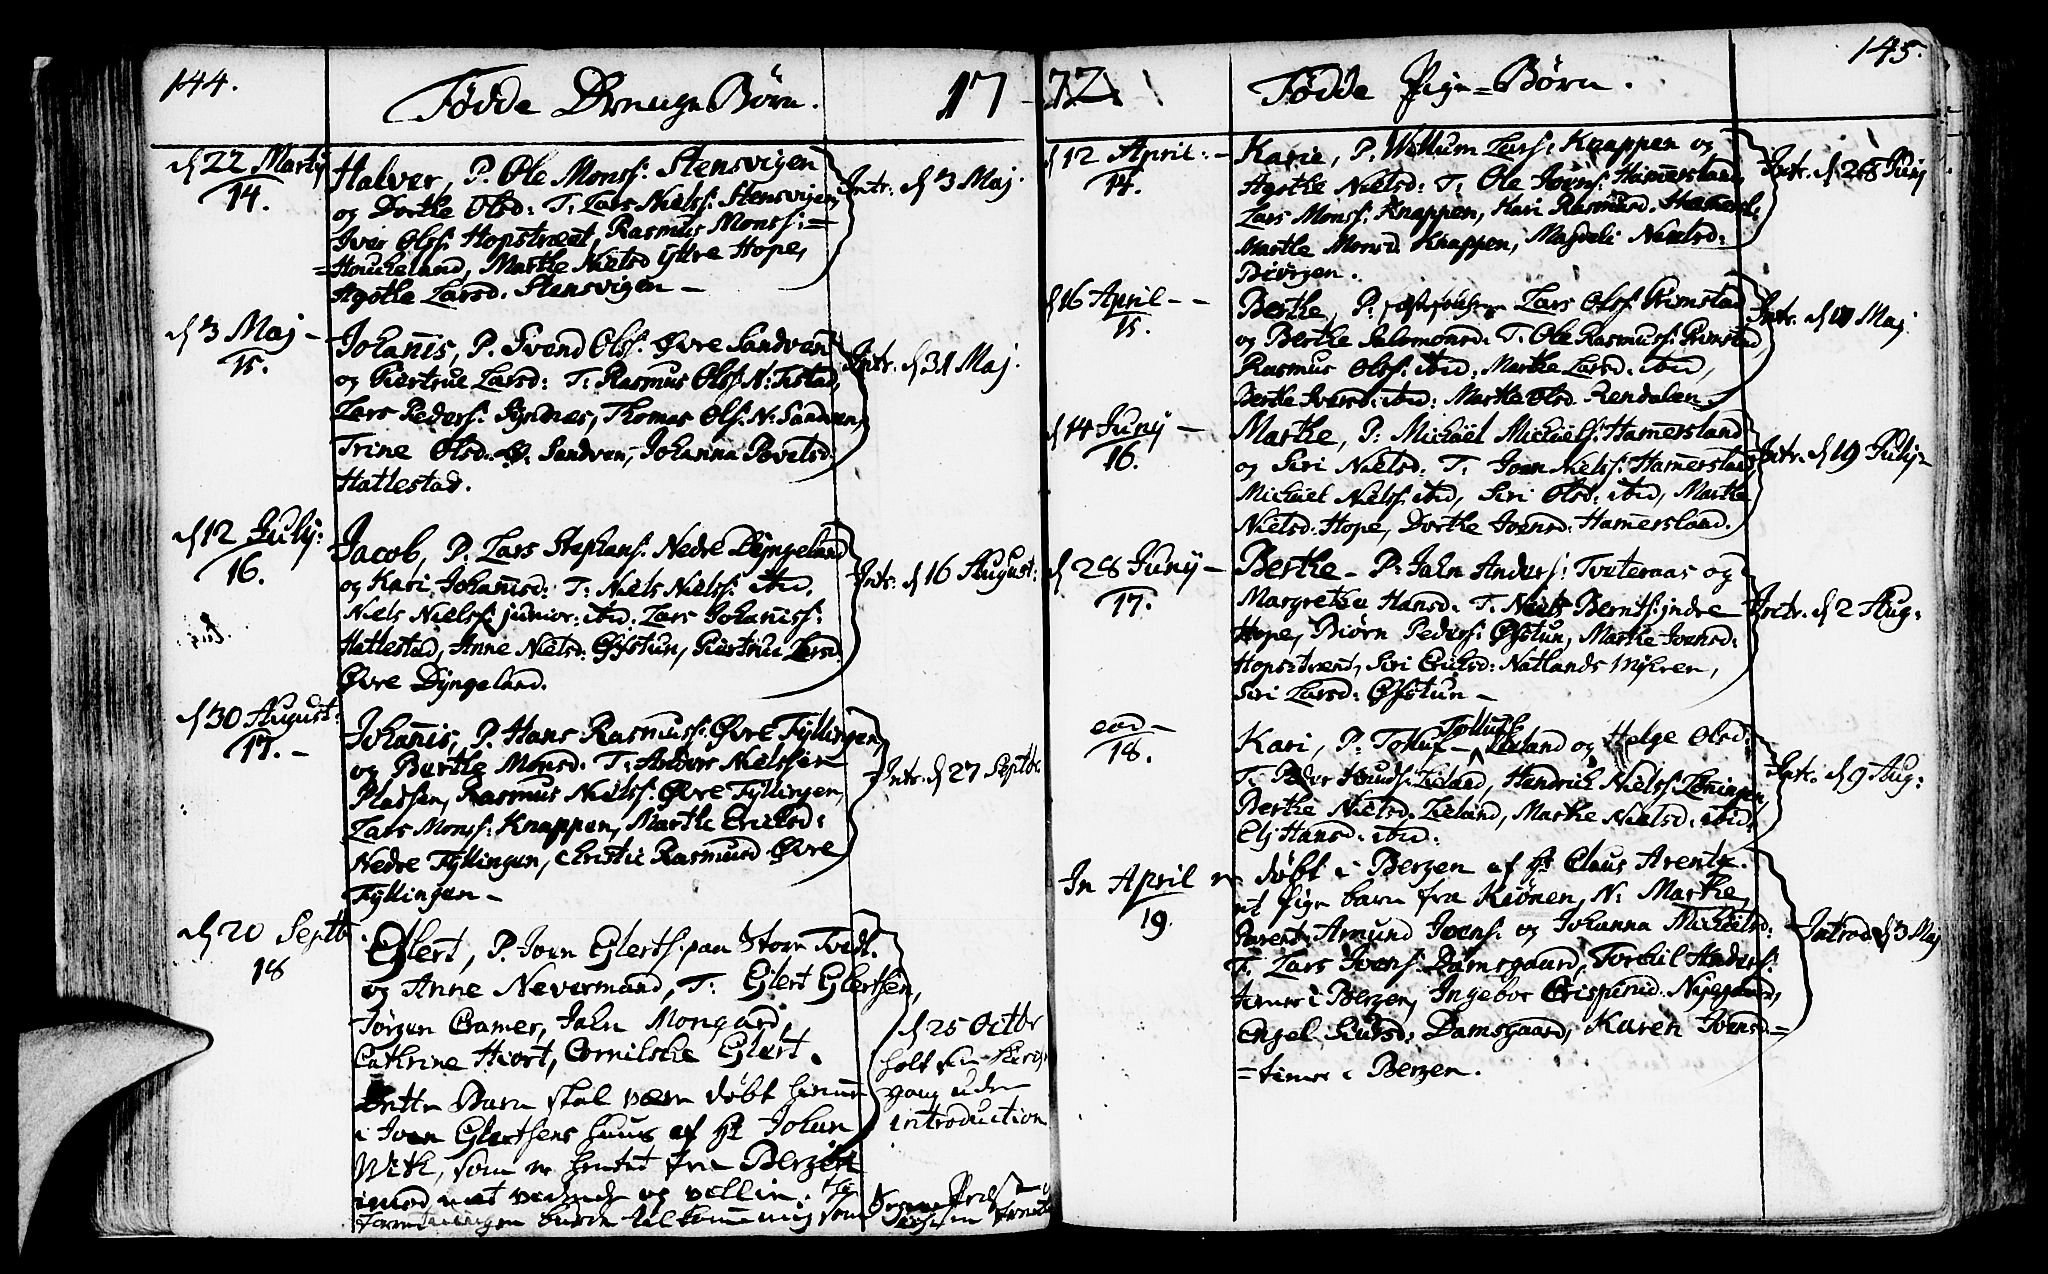 144.
Fødde Drenge Børn.
17
d 22 Martij
14.
Halver, P. Ole Monss: Stensvigen
og Dorthe Olsd: T: Lars Nielss: Stensvigen,
Iver Olss: Hopstræet, Rasmus Monss:=
=Houcheland, Marthe Nielsd ijtre Hope,
Agothe Larsd. Stensvigen –
Intr. d 3 Maj.
d 3 Maj –
15.
Johannis, P. Svend Olss. Øvre Sandven
og Giertrue Larsd: T: Rasmus Olss N: Tistad,
Lars Peders: Hyndnæs, Thomas Olss. N: Sandven,
Trine Olsd. Ø: Sandven, Johanna Povelsd:
Hattestad.
Intr. d 31 Maj.
d 12 Julij:
16.
Jacob, P: Lars Stephans: Nedre Dijngeland
og Kari Johannisd: T: Niels Nielss: ibid,
Niels Nielss: junior: ibid: Lars Johaniss:
Hattestad, Anne Nielsd: Øfstun, Giertrue Larsd.
Øvre Dijngeland.
Intr. d 16 August:
d 30 August:
17. –
Johannis, P. Hans Rasmuss: Øvre Fyllingen,
og Berthe Monsd: T: Anders Nielssen
Pladsen, Rasmus Nielss: Øvre Fyllingen,
Lars Monss: Knappen, Marthe Erichsd:
Nedre Fyllingen, Christie Rasmusd Øvre
Fyllingen –
Intr. d 27 Septbr
d 20 Septb
18
Eilert, P. Joen Eilerts: paa Store Tvedt
og Anne Nevermand, T: Eilert Eilertsen,
Jørgen Cramer, John Mongard,
Cathrine Hiort, Cornilsche Eilert.
Dette Barn skal være døbt hiemme
i Joen Eilertsens huus af Hr Johan
With, som er hentet fra Bergen
imod mit vidende og villie.
d 25 Octbr
holt sin Kirch
gang uden
introduction
72
Fødde Pige=Børn.
145.
d 12 April: –
14.
Karie, P: Willum Larss: Knappen og
Agothe Nielsd: T: Ole Joens: Hammersland,
Lars Monss: Knappen, Kari Rasmusd. Hammersl:
Marthe Monsd Knappen, Magdeli Nielsd:
Biørgen.
Intr. d 28 Junij
d 16 April – –
15.
Berthe, P: Lars Olss Grimstad
og Berthe Salomonsd. T. Ole Rasmuss: Grimstad,
Rasmus Olss. ibid: Marthe Larsd. ibid,
Berthe Iversd: ibid: Marthe Olsd. Rendalen.
Intr. d 10 Maj
d 14 Junij –
16.
Marthe, P: Michael Michaels: Hammersland
og Siri Nielsd: T: Joen Nielss: Hammersland
Michael Nielss. ibid, Siri Olsd: ibid, Marthe
Nielsd. Hope, Dorthe Joensd: Hammersland.
Intr. d 19 Julij
d 28 Junij –
17.
Berthe – P: John Anders: Tveteraas og
Margrethe Hansd. T. Niels Bernts: indre
Hope, Biørn Peders: Øfstun, Marthe Iversd:
Hopstræet, Siri Erichsd: Natlands Mijhren,
Siri Larsd: Øfstun –
Intr. d 2 Aug:
eod –
18.
Kari, P: Tollef – Tollefs Zieland og Helge Olsd:
T. Peder Knuds: Zieland, Hendrich Nielss: Lønningen,
Berthe Nielsd. Zieland, Marthe Nielsd: ibid,
Eli Hansd: ibid:
Intr. d 9 Aug:
In April er
19.
døbt i Bergen af Hr Claus Arentz.
et Pige barn fra Kiønen, N: Marthe,
Parent: Amund Joens: og Johanna Michelsd:
T. Lars Ivers: Damsgaard, Torkil Anders:
tiener i Bergen, Ingebor Crispinid. Nygaard,
Engel Siursd: Damsgaard, Karen Iversd=
=tiener i Bergen.
Introd d 3 Maj